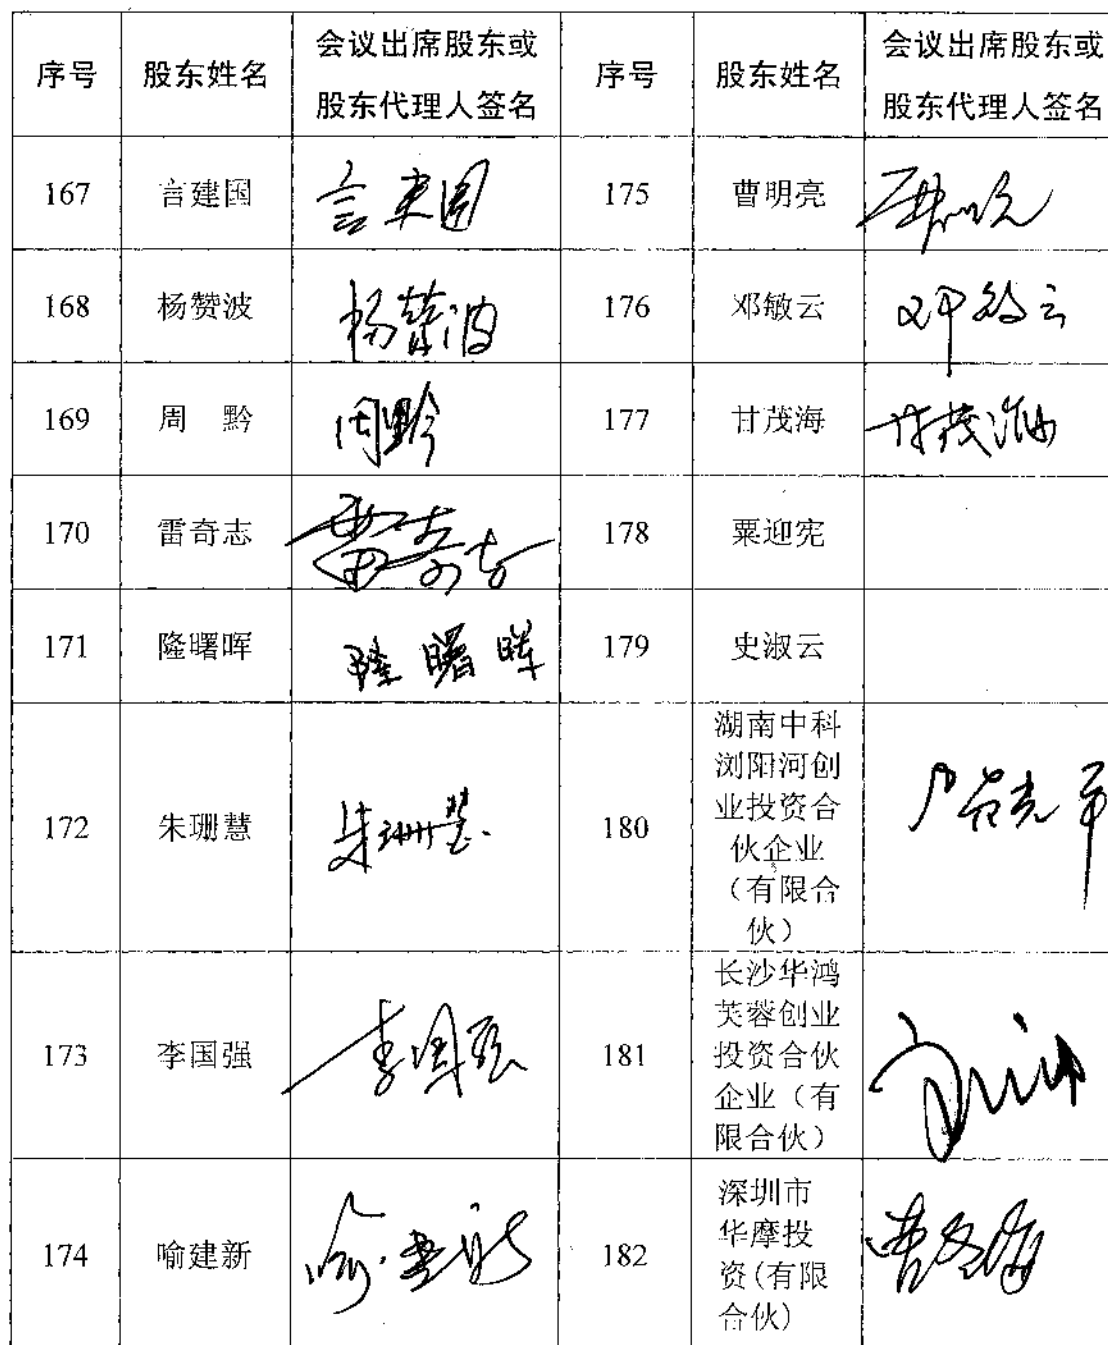 序号 股东姓名 会议出席股东或 序号 股东姓名 会议出席股东或
股东代理人签名 股东代理人签名
167 言建国 言建国 175 曹明亮
168 杨赞波 杨赞波 176 邓敏云 邓敏云
169 周 黔 周黔 177 甘茂海 甘茂海
170 雷奇志 雷奇志 178 粟迎宪
171 隆曙晖 隆曙晖 179 史淑云
172 朱珊慧 朱珊慧 180 湖南中科
浏阳河创
业投资合
伙企业
（有限合
伙）
173 李国强 李国强 181 长沙华鸿
芙蓉创业
投资合伙
企业（有
限合伙）
174 喻建新 喻建新 182 深圳市
华摩投
资(有限
合伙)